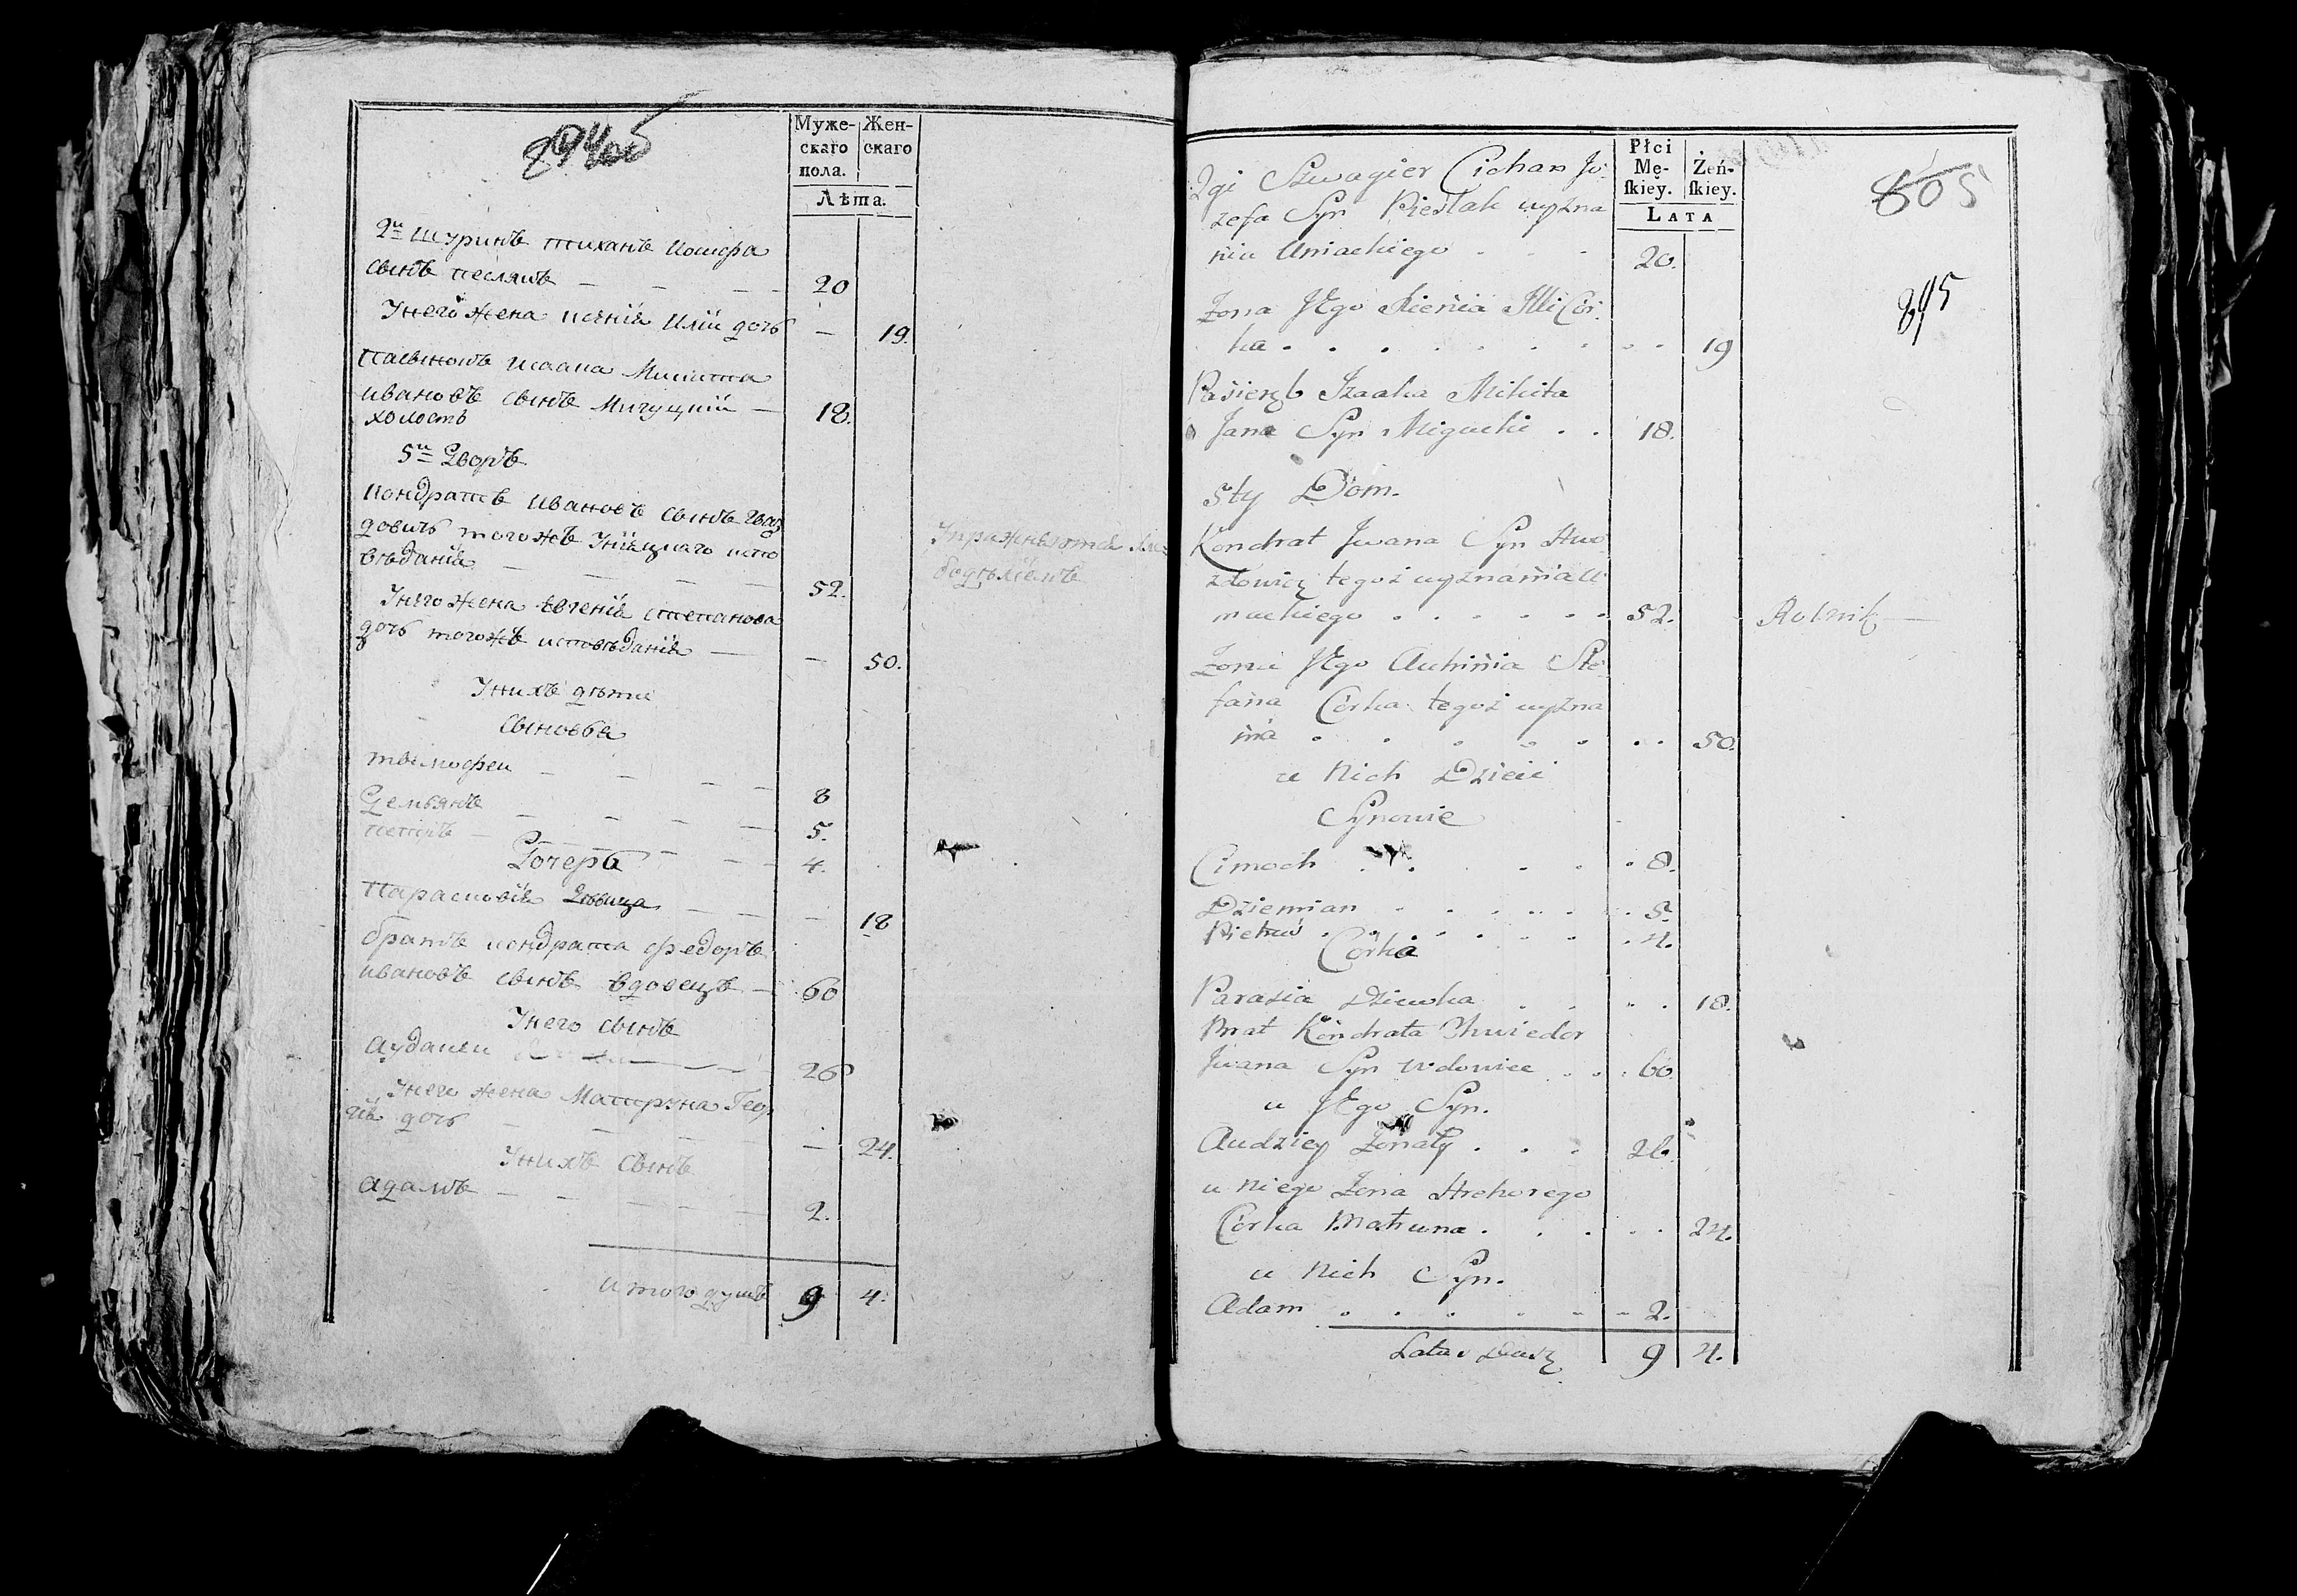 294об
Муже-
скаго
пола.
Жен-
скаго
Лѣта.
2й шуринъ тиханъ иосифа
сынъ песлякъ 20
Унего жена ксенія Иліи дочь — 19.
пасынокъ исаака Микита
ивановъ сынъ Мигуцкій — 18.
холостъ
5й Дворъ
кондратъ ивановъ сынъ гваз
довичъ тогожъ Уніяцкаго испо
вѣданія 52.
Унего жена евгенія степанова
дочь тогожъ исповѣданія — 50.
Унихъ дѣти
Сыновья
тимофеи 8
Демьянъ 5.
петръ 4.
Дочерь
Парасковія Девица — 18
братъ кондрата федоръ
ивановъ сынъ вдовецъ — 60
Унего сынъ
аудакеи 26
Унего жена Матруна Геор
гія дочь — 24.
Унихъ сынъ
адамъ 2.
итого душъ 9 4.
Płci
Mę-
skiey.
Żeń-
skiey.
LATA
805
895
2gi Szwagier Cichan Jó
zefa Syn Pieslak wyzna
nia Uniackiego 20.
Zona JEgo Xienia Illi Cór
ka 19
Pasierzb Izaaka Mikita
Jana Syn Migucki 18.
5ty Dom.
Kondrat Jwana Syn Hwo
zdowicz tegoż wyznania U
niackiego 52. Rolnik
Zona JEgo Auhinia Ste
fana Córka tegoz wyzna
nia 50.
u Nich Dzieci
Synowie
Cimoch 8.
Dziemian 5.
Pietruś 4.
Córka
Parasia Dziewka 18.
Brat Kondrata Chwiedor
Jwana Syn Wdowiec 60.
u JEgo Syn.
Audziey Zonaty 26.
u Niego Zona Hrehorego
Córka Matruna 24.
u Nich Syn.
Adam 2.
Latus Dusz 9 4.